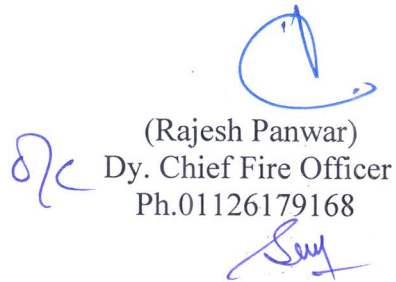 (Rajesh Panwar)
o/c Dy. Chief Fire Officer
Ph.01126179168